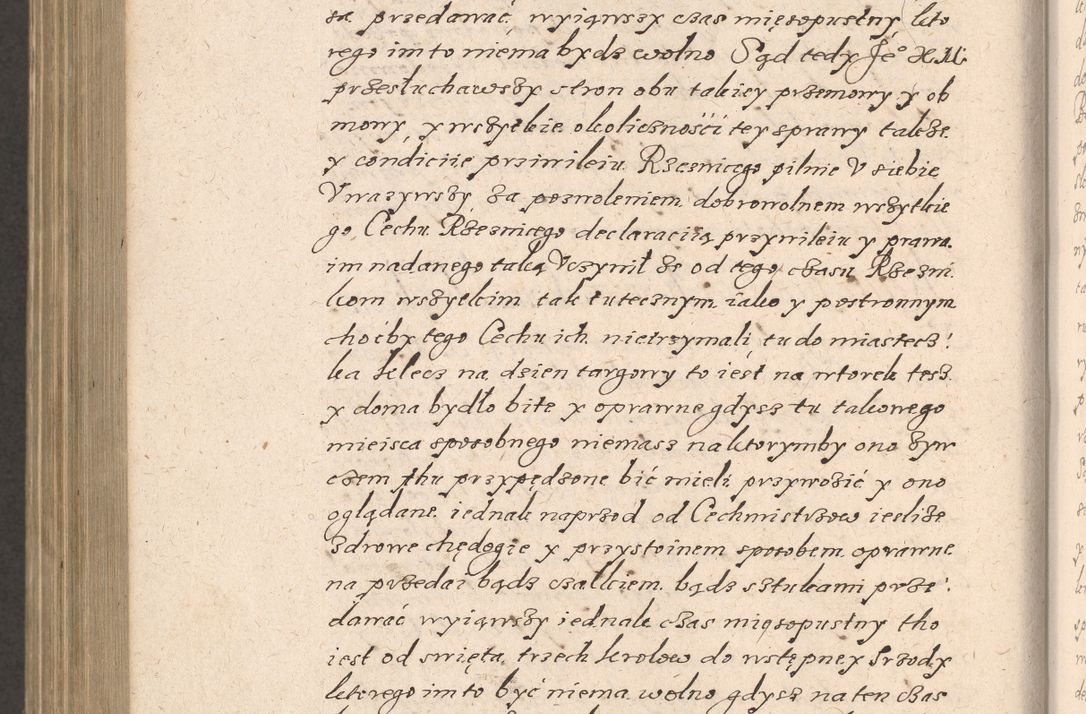 sa przedawać wyiąwszy czas mięsopustny kto
rego im to niema bydz wolno Sąd tedy Je° X M
przesłuchawszy stron obu takiey przemowy y ob
mowy y wszytkie okolicznośći tey sprawy także
y condiciie prziwileiu Rzeznicego pilnie V siebie
Vwazywszy za pozwoleniem dobrowolnem wszytkie
go Cechu Rzeznicego declaraciią przywileiu y prawa
im nadanego taką Vczynił że od tego czasu Rzezni
kom wszytkim tak tutecznym iako y postronnym
choćby tego Cechu ich nietrzymali tu do miastecz
ka Kielcz na dzien targowy to iest na wtorek tesz
y doma bydło bite y oprawne gdysz tu takowego
mieisca sposobnego niemasz na ktorymby ono żyw
czem thu przypędzone bić mieli przywozić y ono
oglądane iednak naprzod od Cechmistrzow ieslize
zdrowe chędogie y przystoinem sposobem oprawne
na przedai bądz czałkiem bądz sztukami prze
dawać wyiąwszy iednak czas mięsopustny tho
iest od swięta trzech krolow do wstępney srzody
ktorego im to być niema wolno gdysz na ten czas